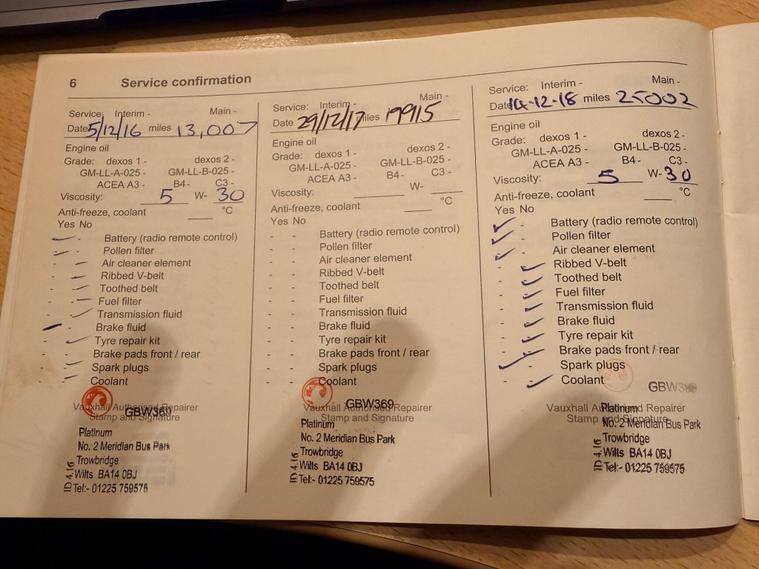 6 Service confirmation
Service: Interim - Main -
Date 5/12/16 miles 13,007
Engine oil
Grade: dexos 1 - dexos 2 -
GM-LL-A-025 - GM-LL-B-025 -
ACEA A3 - B4- C3 -
Viscosity: 5 W- 30
Anti-freeze, coolant °C
Yes No
- - Battery (radio remote control)
- - Pollen filter
- - Air cleaner element
- - Ribbed V-belt
- - Toothed belt
- - Fuel filter
- - Transmission fluid
- - Brake fluid
- - Tyre repair kit
- - Brake pads front / rear
- - Spark plugs
- - Coolant
GBW369
Vauxhall Authorised Repairer
Stamp and Signature
Platinum
No. 2 Meridian Bus Park
Trowbridge
Wilts BA14 0BJ
Tel:- 01225 759575
ID 4.16
Service: Interim - Main -
Date 29/12/17 miles 19915
Engine oil
Grade: dexos 1 - dexos 2 -
GM-LL-A-025 - GM-LL-B-025 -
ACEA A3 - B4- C3 -
Viscosity: W-
Anti-freeze, coolant °C
Yes No
- - Battery (radio remote control)
- - Pollen filter
- - Air cleaner element
- - Ribbed V-belt
- - Toothed belt
- - Fuel filter
- - Transmission fluid
- - Brake fluid
- - Tyre repair kit
- - Brake pads front / rear
- - Spark plugs
- - Coolant
GBW369
Vauxhall Authorised Repairer
Stamp and Signature
Platinum
No. 2 Meridian Bus Park
Trowbridge
Wilts BA14 0BJ
Tel:- 01225 759575
ID 4.16
Service: Interim - Main -
Date -12-18 miles 25002
Engine oil
Grade: dexos 1 - dexos 2 -
GM-LL-A-025 - GM-LL-B-025 -
ACEA A3 - B4- C3 -
Viscosity: 5 W- 30
Anti-freeze, coolant °C
Yes No
- - Battery (radio remote control)
- - Pollen filter
- - Air cleaner element
- - Ribbed V-belt
- - Toothed belt
- - Fuel filter
- - Transmission fluid
- - Brake fluid
- - Tyre repair kit
- - Brake pads front / rear
- - Spark plugs
- - Coolant
GBW369
Vauxhall Authorised Repairer
Stamp and Signature
Platinum
No. 2 Meridian Bus Park
Trowbridge
Wilts BA14 0BJ
Tel:- 01225 759575
ID 4.16